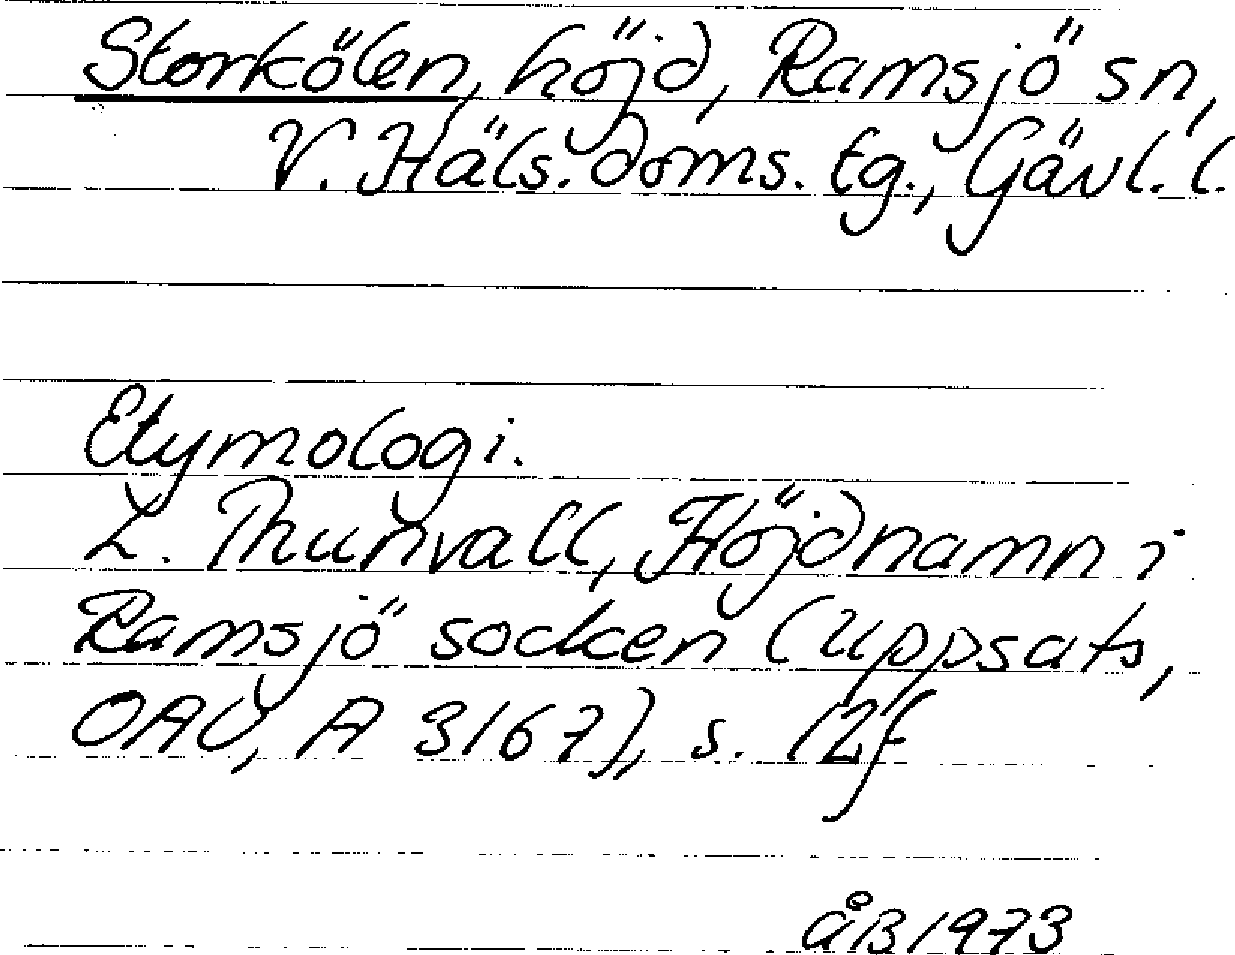 Storkölen, höjd, Ramsjö sn,
V. Häls. doms. tg., Gävl. l.
Etymologi.
L. Thunvall, Höjdnamn i
Ramsjö socken (uppsats,
OAU, A 3167), s. 12f
åB 1973